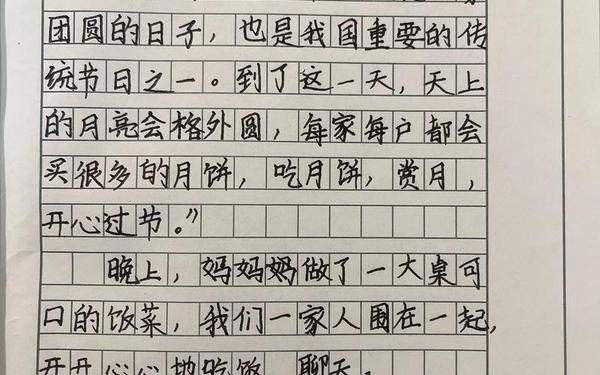 团圆的日子，也是我国重要的传
统节日之一。到了这一天，天上
的月亮会格外圆，每家每户都会
买很多的月饼，吃月饼，赏月，
开心过节。”
晚上，妈妈妈做了一大桌可
口的饭菜，我们一家人围在一起，
开开心心地吃饭、聊天。